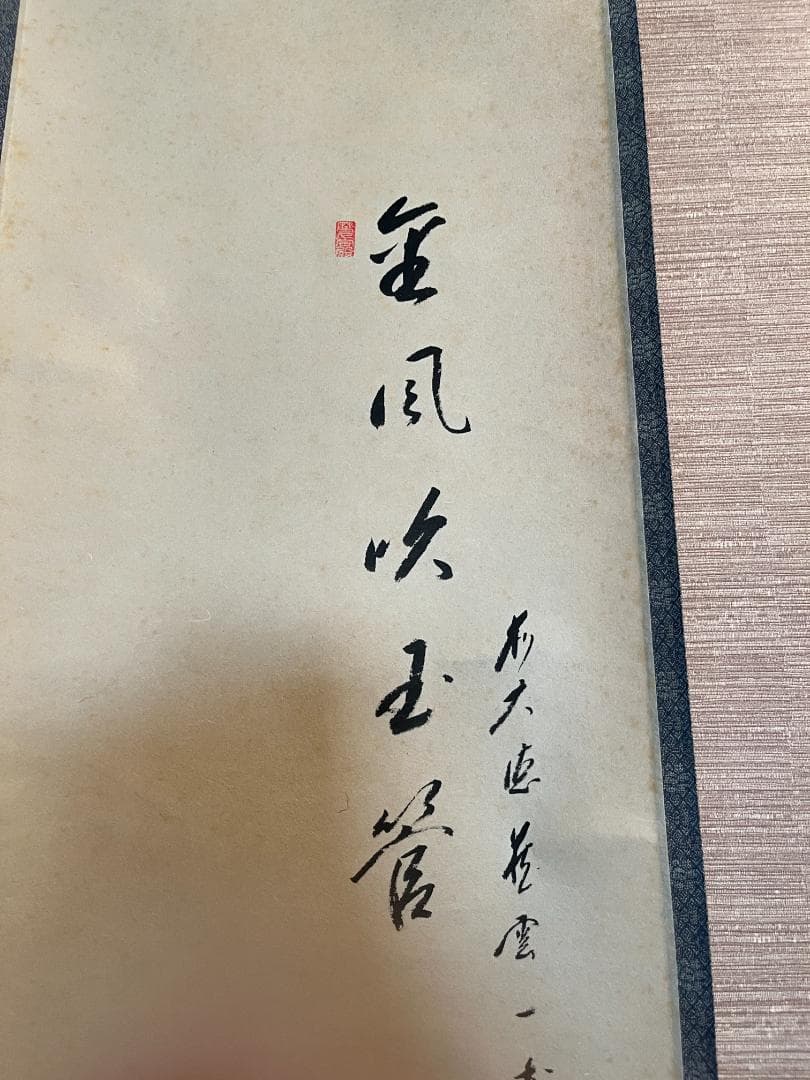 金風吹玉管
前大徳藏雲一